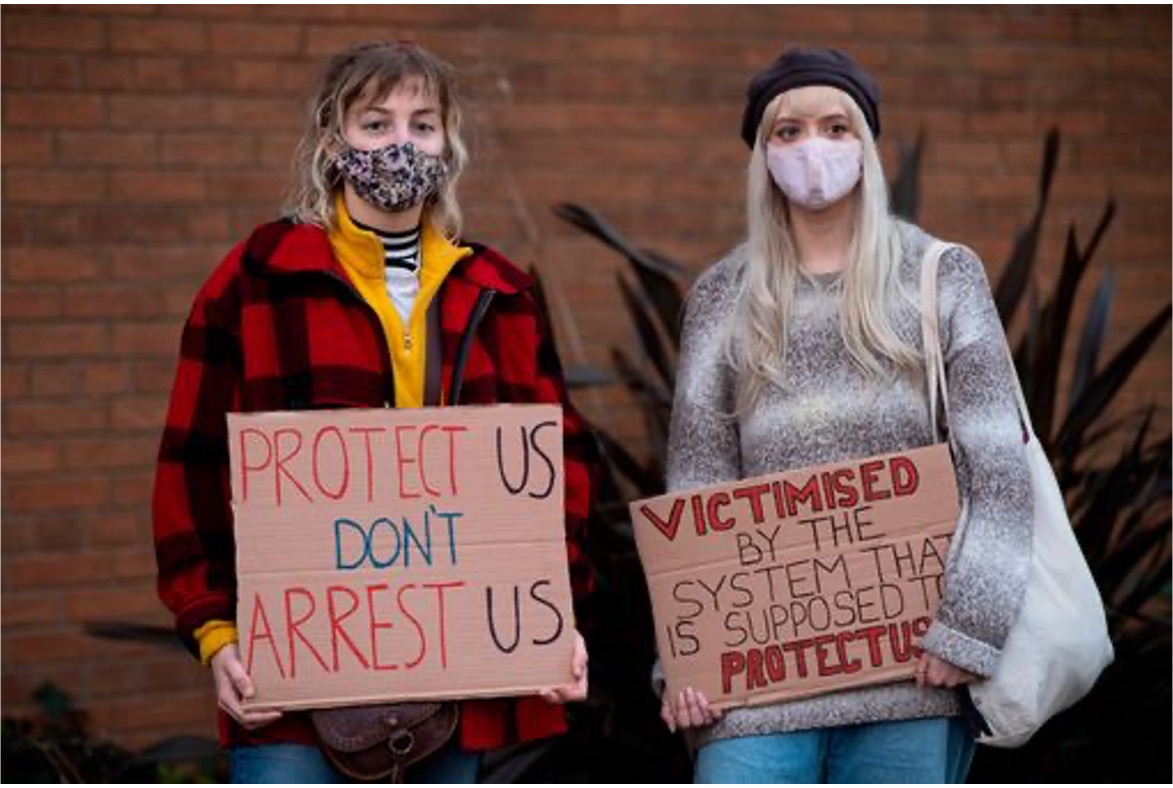 PROTECT US
DON'T
ARREST US
VICTIMISED
BY THE
SYSTEM THAT
IS SUPPOSED TO
PROTECT US